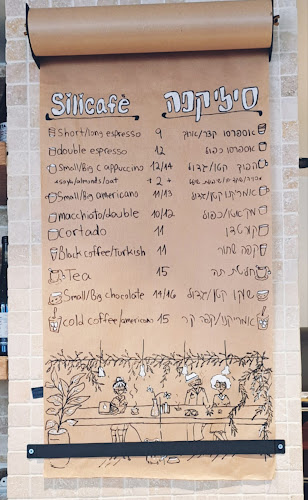 Silicafè סיליקפה
Short/long espresso 9 אספרסו קצר/ארוך
double espresso 12 אספרסו כפול
Small/Big cappuccino 12/14 הפוך קטן/גדול
+soya/almonds/oat +2+
Small/Big americano 11/13 אמריקנו קטן/גדול
macchiato/double 10/12 מקיאטו/כפול
Cortado 11 קורטדו
Black coffee/Turkish 11 קפה שחור
Tea 15 חליטת תה
Small/Big chocolate 14/16 שוקו קטן/גדול
cold coffee/americano 15 אמריקנו/קפה קר